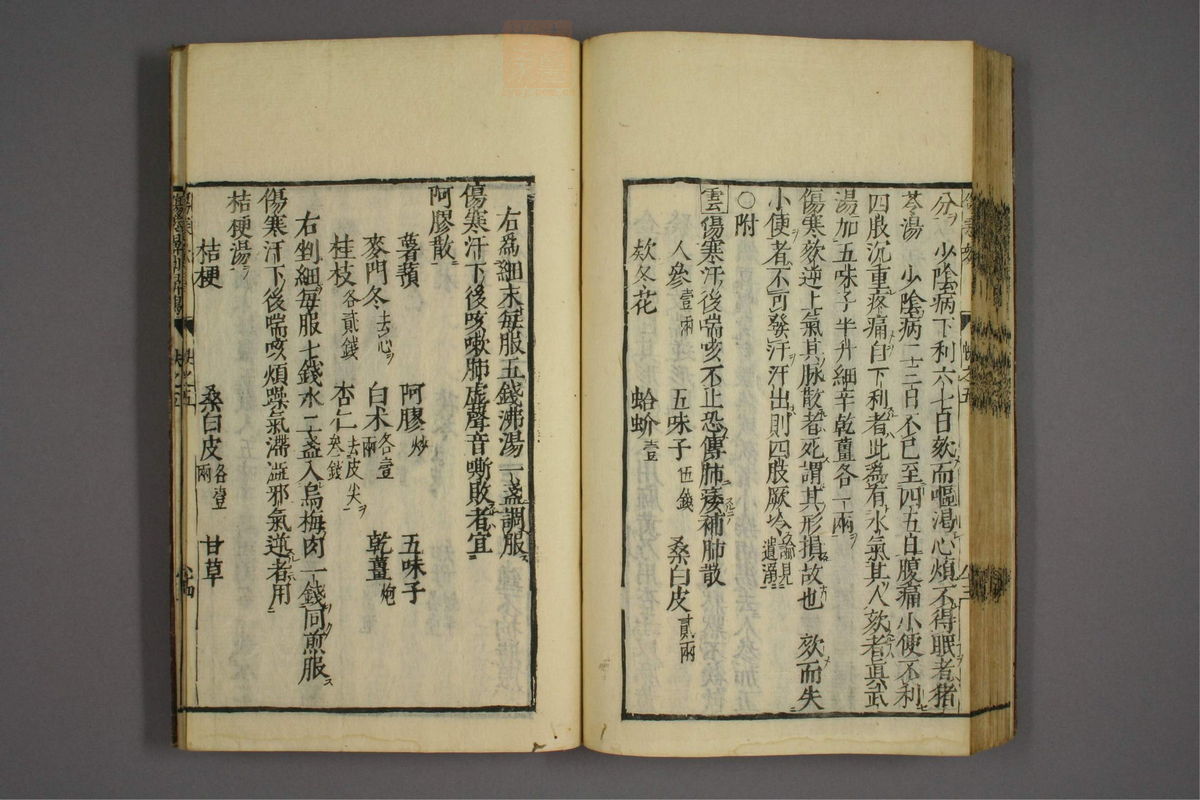 分 少陰病下利六七日欬而嘔渴心煩不得眠者猪
苓湯 少陰病二三日不已至四五日腹痛小便不利
四肢沉重疼痛自下利者此為有水氣其人欬者真武
湯加五味子半升細辛乾薑各一兩
傷寒欬逆上氣其脉散者死謂其形損故也 欬而失
小便者不可發汗汗出則四肢厥冷 論見遺溺
○附
雲 傷寒汗後喘咳不止恐傳肺痿補肺散
人參壹兩 五味子伍錢 桑白皮貳兩
欵冬花 蛤蚧壹
右為細末每服五錢沸湯一盞調服
傷寒汗下後咳嗽肺虛聲音嘶敗者宜
阿膠散
薯蕷 阿膠炒 五味子
麥門冬去心 白术各壹兩 乾薑炮
桂枝各貳錢 杏仁去皮尖叁錢
右剉細每服七錢水二盞入烏梅肉一錢同煎服
傷寒汗下後喘咳煩躁氣滯澁邪氣逆者用
桔梗湯
桔梗 桑白皮各壹兩 甘草